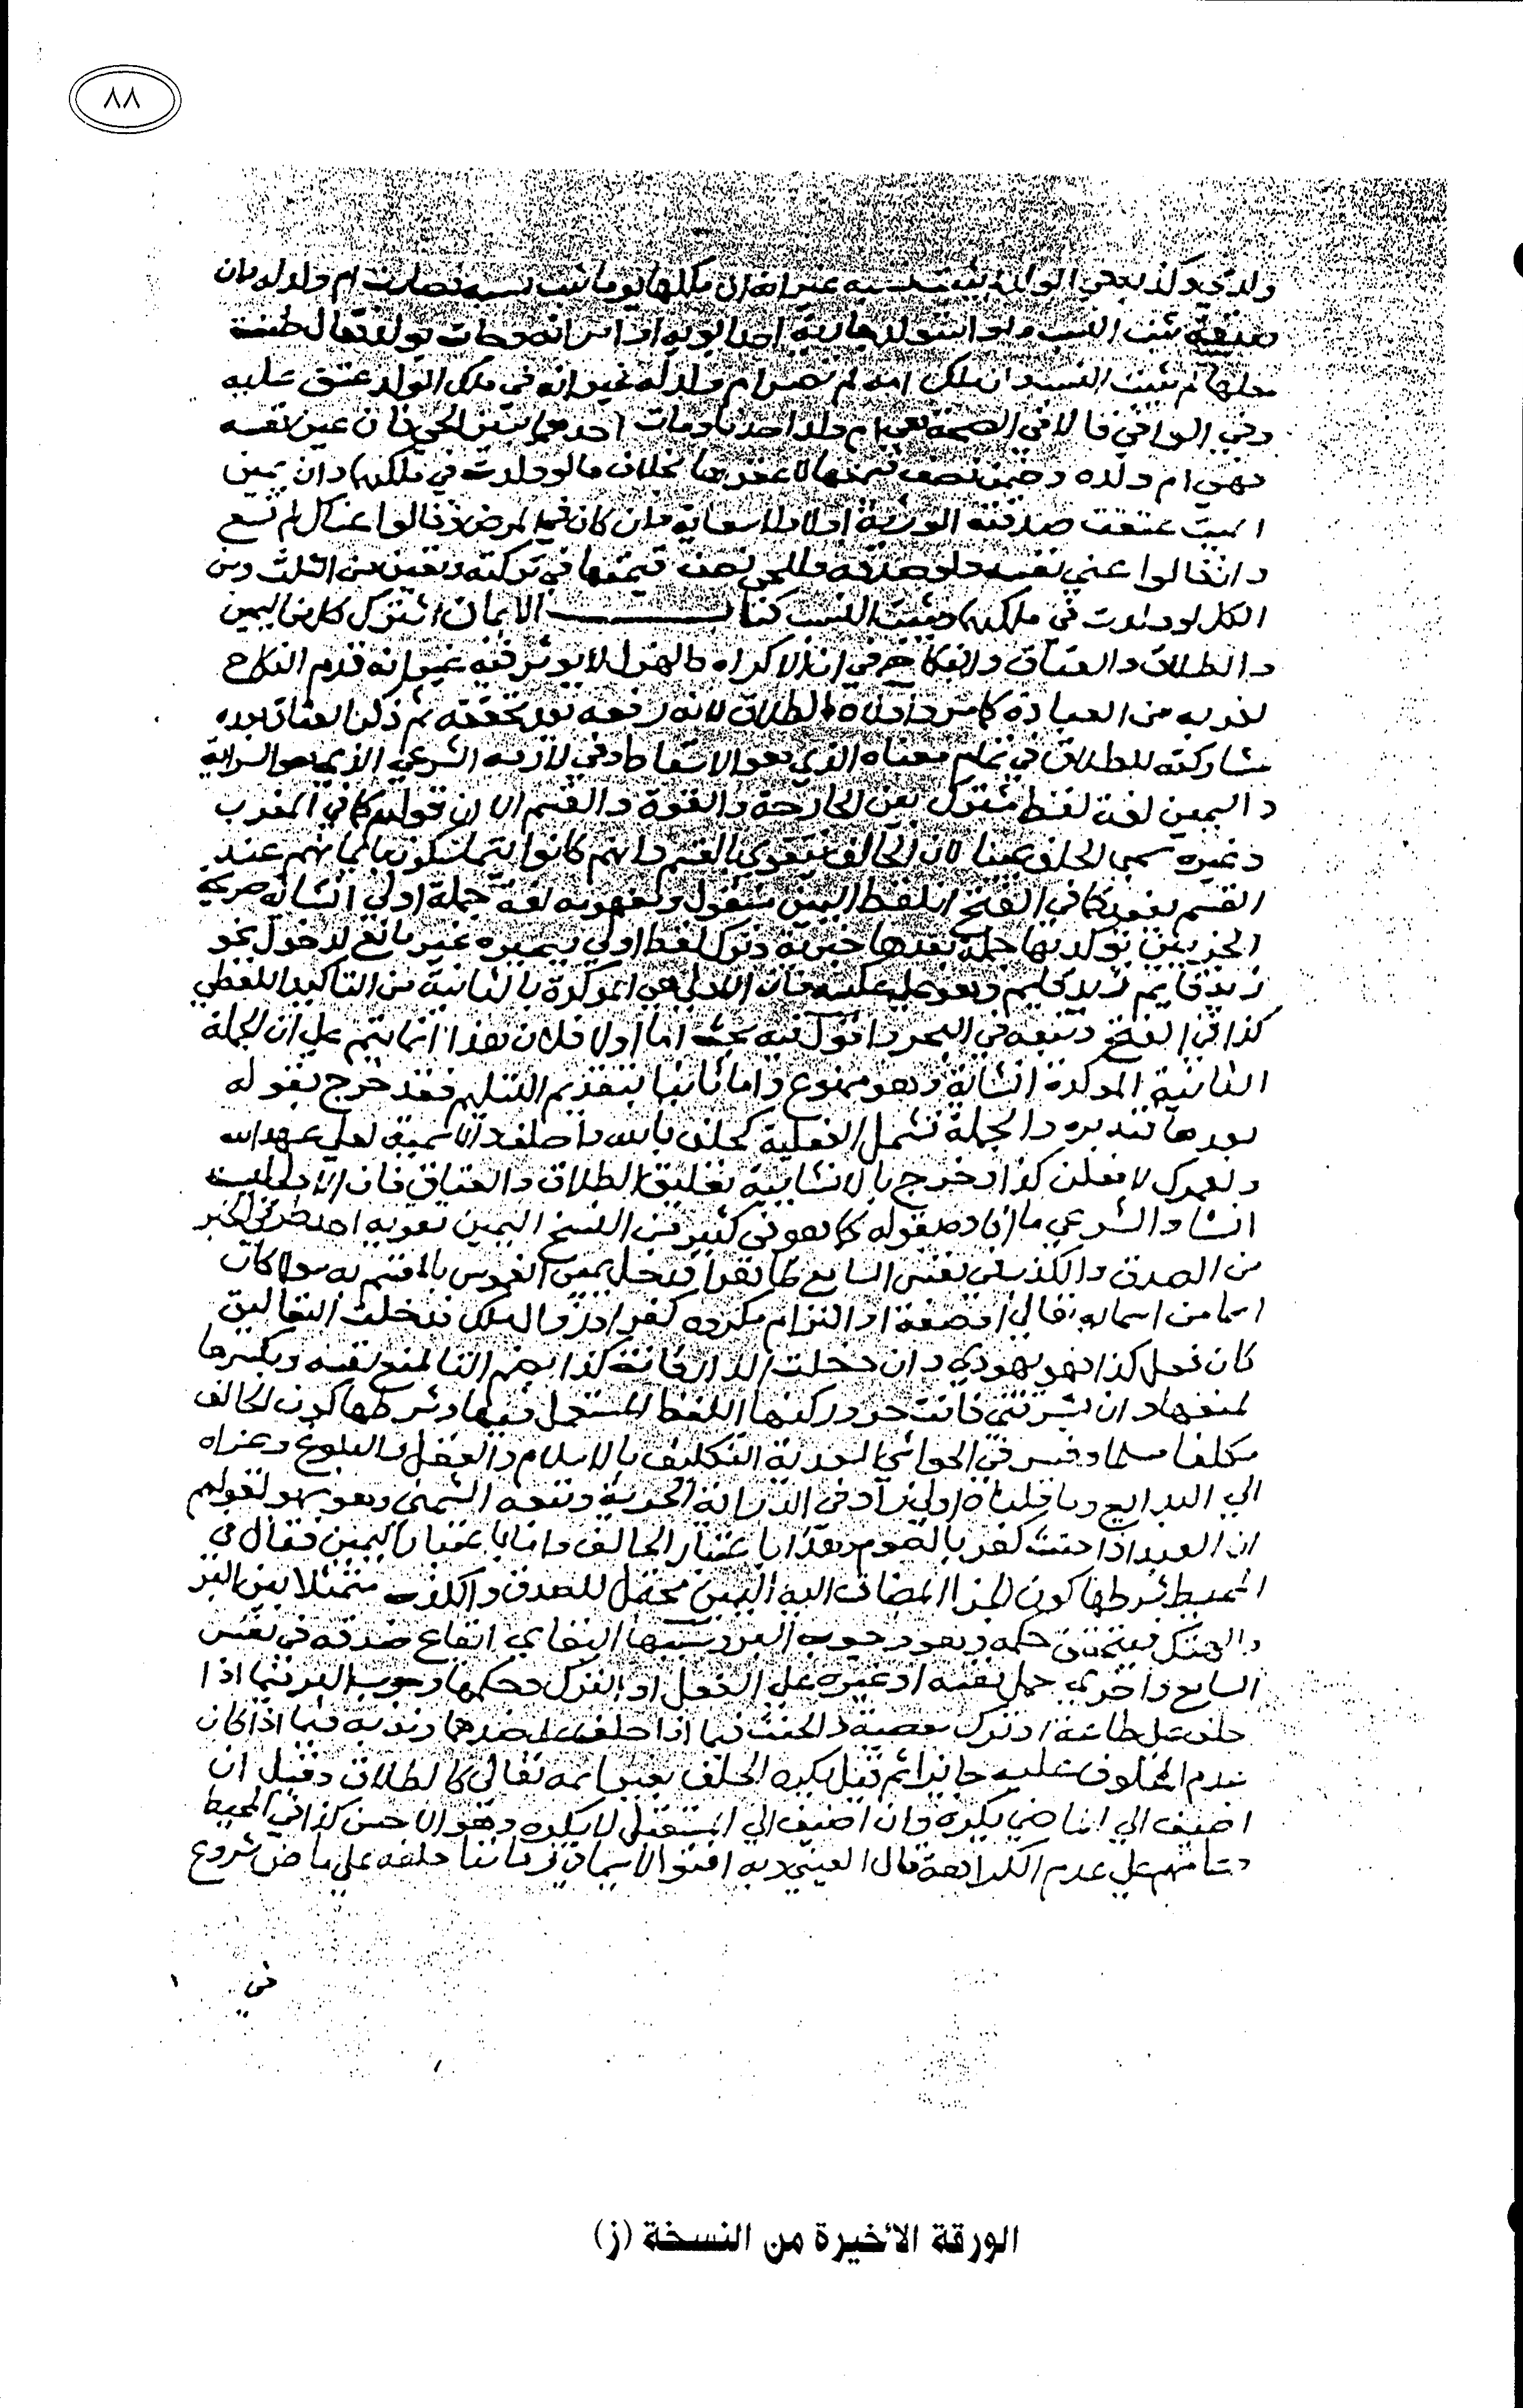 ٨٨
ام ولد له بان
ثبت النسب ولو استولد جارية احد ابويه او امراته وقال ظننت
حلها لم يثبت النسب وان ملك امه لم تصر ام ولد له غير انه في ملك الولد عتق عليه
وفي ام ولد احدنا ومات احدهما الحي فان عين نفسه
فهي ام ولده وضمن نصف قيمتها لا عقرها بخلاف ما لو ولدت في ملكهما وان عين
الميت عتقت صدقته الورثة اولا ولا سعاية فان كان قبل لم تسع
وان قالوا عني نفسه ولو صدقه وللحي نصف قيمتها في تركته وتعتق من الثلث ومن
الكل لو ولدت في ملكهما وثبت النسب كتاب الايمان اشترك كل من اليمين
والطلاق والعتاق والنكاح في ان الاكراه والهزل لا يوثر فيه غير انه قدم النكاح
لقربه من العبادة كما مر واولاه الطلاق لانه رفعه بعد تحققه ثم ذكر العتاق بعده
مشاركته للطلاق في تمام معناه الذي هو الاسقاط وفي لازمه الشرعي الذي هو السراية
واليمين لغة لفظ مشترك بين الجارحة والقوة والقسم الا ان قولهم كما في المغرب
وغيره سمي الحلف يمينا لان الحالف يتقوي بالقسم وانهم كانوا يتماسكون بايمانهم عند
القسم يفيد كما في الفتح ان لفظ اليمين منقول ومفهومه لغة جملة اولي انشائية صريحة
الجزءين يوكد بها جملة بعدها خبرية وترك لفظ اولي يصيره غير مانع لدخول نحو
زيد قايم زيد قايم وهو علي عكسه فان الاولي هي الموكدة بالثانية من التاكيد اللفظي
كذا في الفتح وتبعه في البحر واقول فيه بحث اما اولا فلان هذا انما يتم علي ان الجملة
الثانية الموكدة انشائية وهو ممنوع واما ثانيا بتقدير التسليم فقد خرج بقوله
بعدها تدبره والجملة تشمل الفعلية كحلفت بالله واحلف والاسمية كعلي عهد الله
ولعمرك لافعلن كذا وخرج بالانشائية تعليق الطلاق والعتاق فان الاولي ليست
انشا والشرعي ما افاده بقوله كما هو في كثير من النسخ اليمين تقويه احد طرفي الخبر
من الصدق والكذب في نفس السامع بالمقسم به سوا كان
اسما من اسمايه تعالي او صفة او التزام مكروه كفر او زوال ملك فدخلت التعاليق
كان فعل كذا فهو يهودي وان دخلت الدار فانت كذا بضم التا لمنع نفسه وبكسرها
لمنعها وان بشرتني فانت حر وركنها اللفظ المستعمل فيها وشرطها كون الحالف
مكلفا مسلما وفسر في الحواشي السعدية التكليف بالاسلام والعقل والبلوغ وعزاه
الي البدايع وما قلناه اولي زاد في الدراية الحرية وتبعه الشمني وهو سهو لقولهم
ان العبد اذا حنث كفر بالصوم هذا باعتبار الحالف واما باعتبار اليمين فقال في
المحيط شرطها كون الجزا المضاف اليه اليمين محتمل للصدق والكذب متمثلا بين البر
والهتك فيتحقق حكمه وهو وجوب البر وسببها الغايي ايقاع صدقه في نفس
السامع واخري حمل نفسه او غيره علي الفعل او الترك وحكمها وجوب البر فيما اذا
حلف علي طاعة او ترك معصية والحنث فيما اذا حلف علي ضدها وندبه فيما اذا كان
عدم المحلوف عليه جايزا ثم قيل يكره الحلف بغير اسمه تعالي كالطلاق وقيل ان
اضيف الي الماضي يكره وان اضيف الي المستقبل لا يكره وهو الاحسن كذا في المحيط
وعامتهم علي عدم الكراهة قال العيني وبه افتو الا سيما في زماننا حلفه علي ماض شروع
في
الورقة الأخيرة من النسخة (ز)